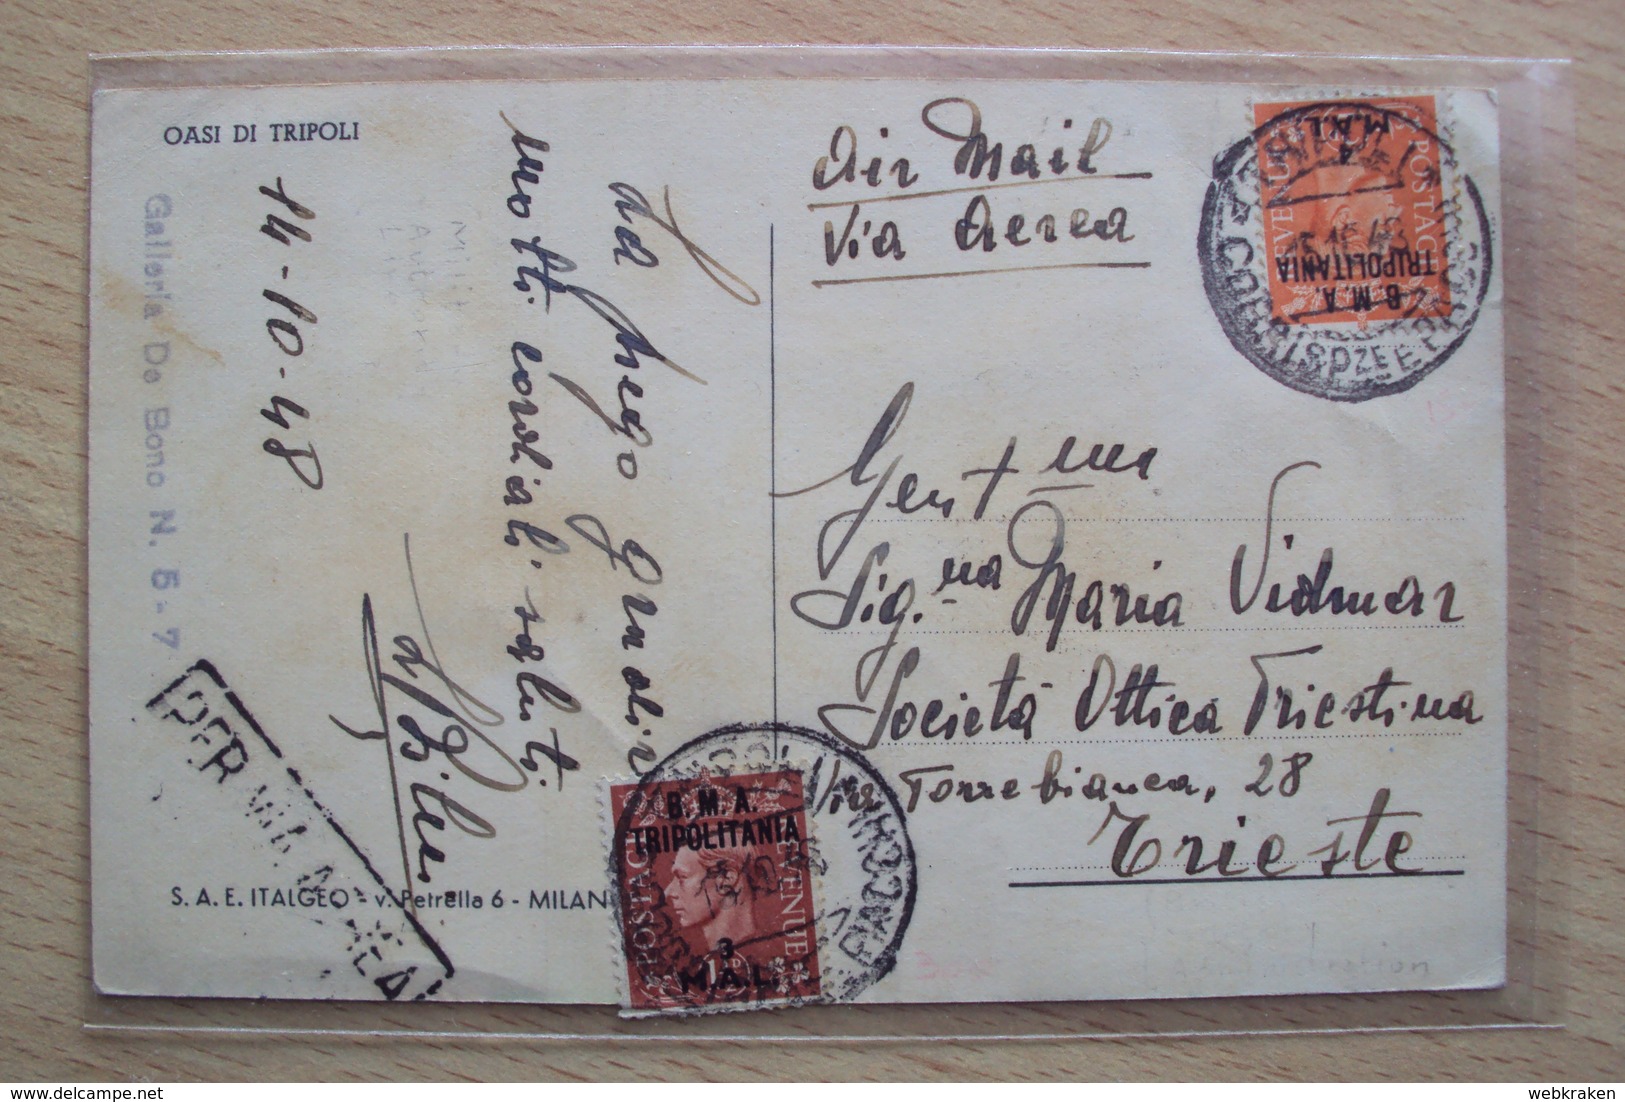 OASI DI TRIPOLI
Galleria De Bono N. 5-7
14-10-48
Ad mego gradir
molti cordiali saluti
PER VIA AEREA
S. A. E. ITALGEO - v. Petrella 6 - MILAN
Air Mail
Via Aerea
Gent ma
Sig.na Maria Vidmar
Società Ottica Triestina
Via Torrebianca, 28
Trieste
B. M. A.
TRIPOLITANIA
4
M.A.L.
POSTAGE REVENUE
TRIPOLI
15.10.48
CORRISPZE E PACCHI
B. M. A.
TRIPOLITANIA
POSTAGE REVENUE
3
M.A.L.
15.10.48
webkraken